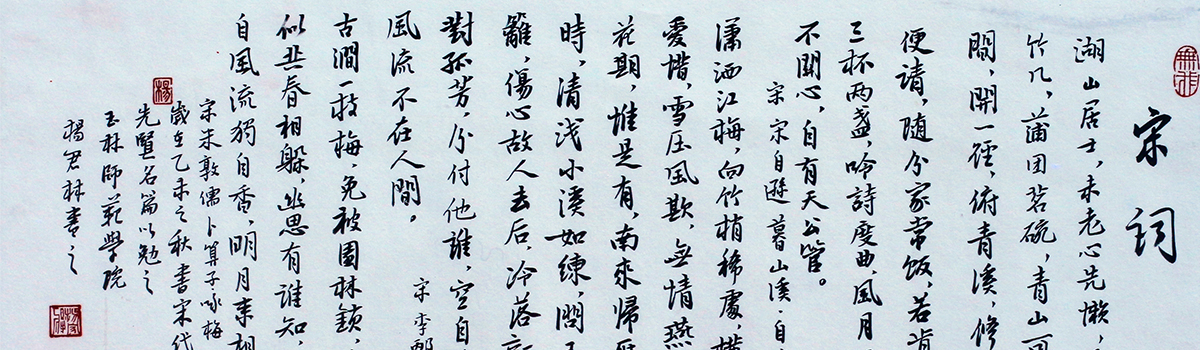 宋詞
湖山居士,未老心先懒,
竹几,蒲团茗碗,青山可
間,開一徑,俯青溪,修
便請,随分家常飯,若肯
三杯两盏,吟詩度曲,風月
不関心,自有天公管。
宋 宋自遜 暮山溪·自
瀟洒江梅,向竹梢稀處,横
愛惜,雪压風欺,無情燕
花期,惟是有,南來歸
時,清浅小溪如練,問
籬,傷心故人去后,冷落
對孤芳,分付他誰,空自
風流不在人間。
宋 李邴
古澗一枝梅,免被園林鎖,
似共春相躲,幽思有誰知,
自風流獨自香,明月来相
宋朱敦儒卜算子咏梅
歲在乙未之秋書宋代
先賢名篇以勉之
玉林師範學院
楊君林書之
楊